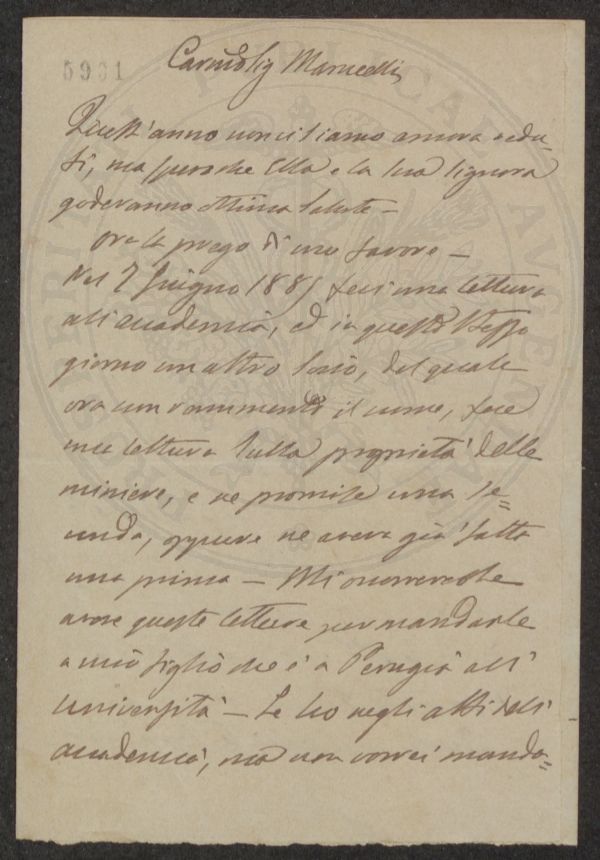 5961
Caris.o Sig Marucelli
Quest'anno non ci siamo ancora vedu-
ti, ma spero che Ella e la sua Signora
goderanno ottima salute -
ora la prego di un favore -
Nel 7 Giugno 1885 feci una lettura
all'accademia, ed in questo stesso
giorno un altro socio, del quale
ora non rammento il nome, fece
una lettura sulla proprietà delle
miniere, e ne promise una se=
conda, oppure ne aveva già fatta
una prima - Mi occorrerebbe
avere queste letture per mandarle
a mio figlio che è a Perugia all'
università - Le ho negli atti dell'
accademia, ma non vorrei manda=